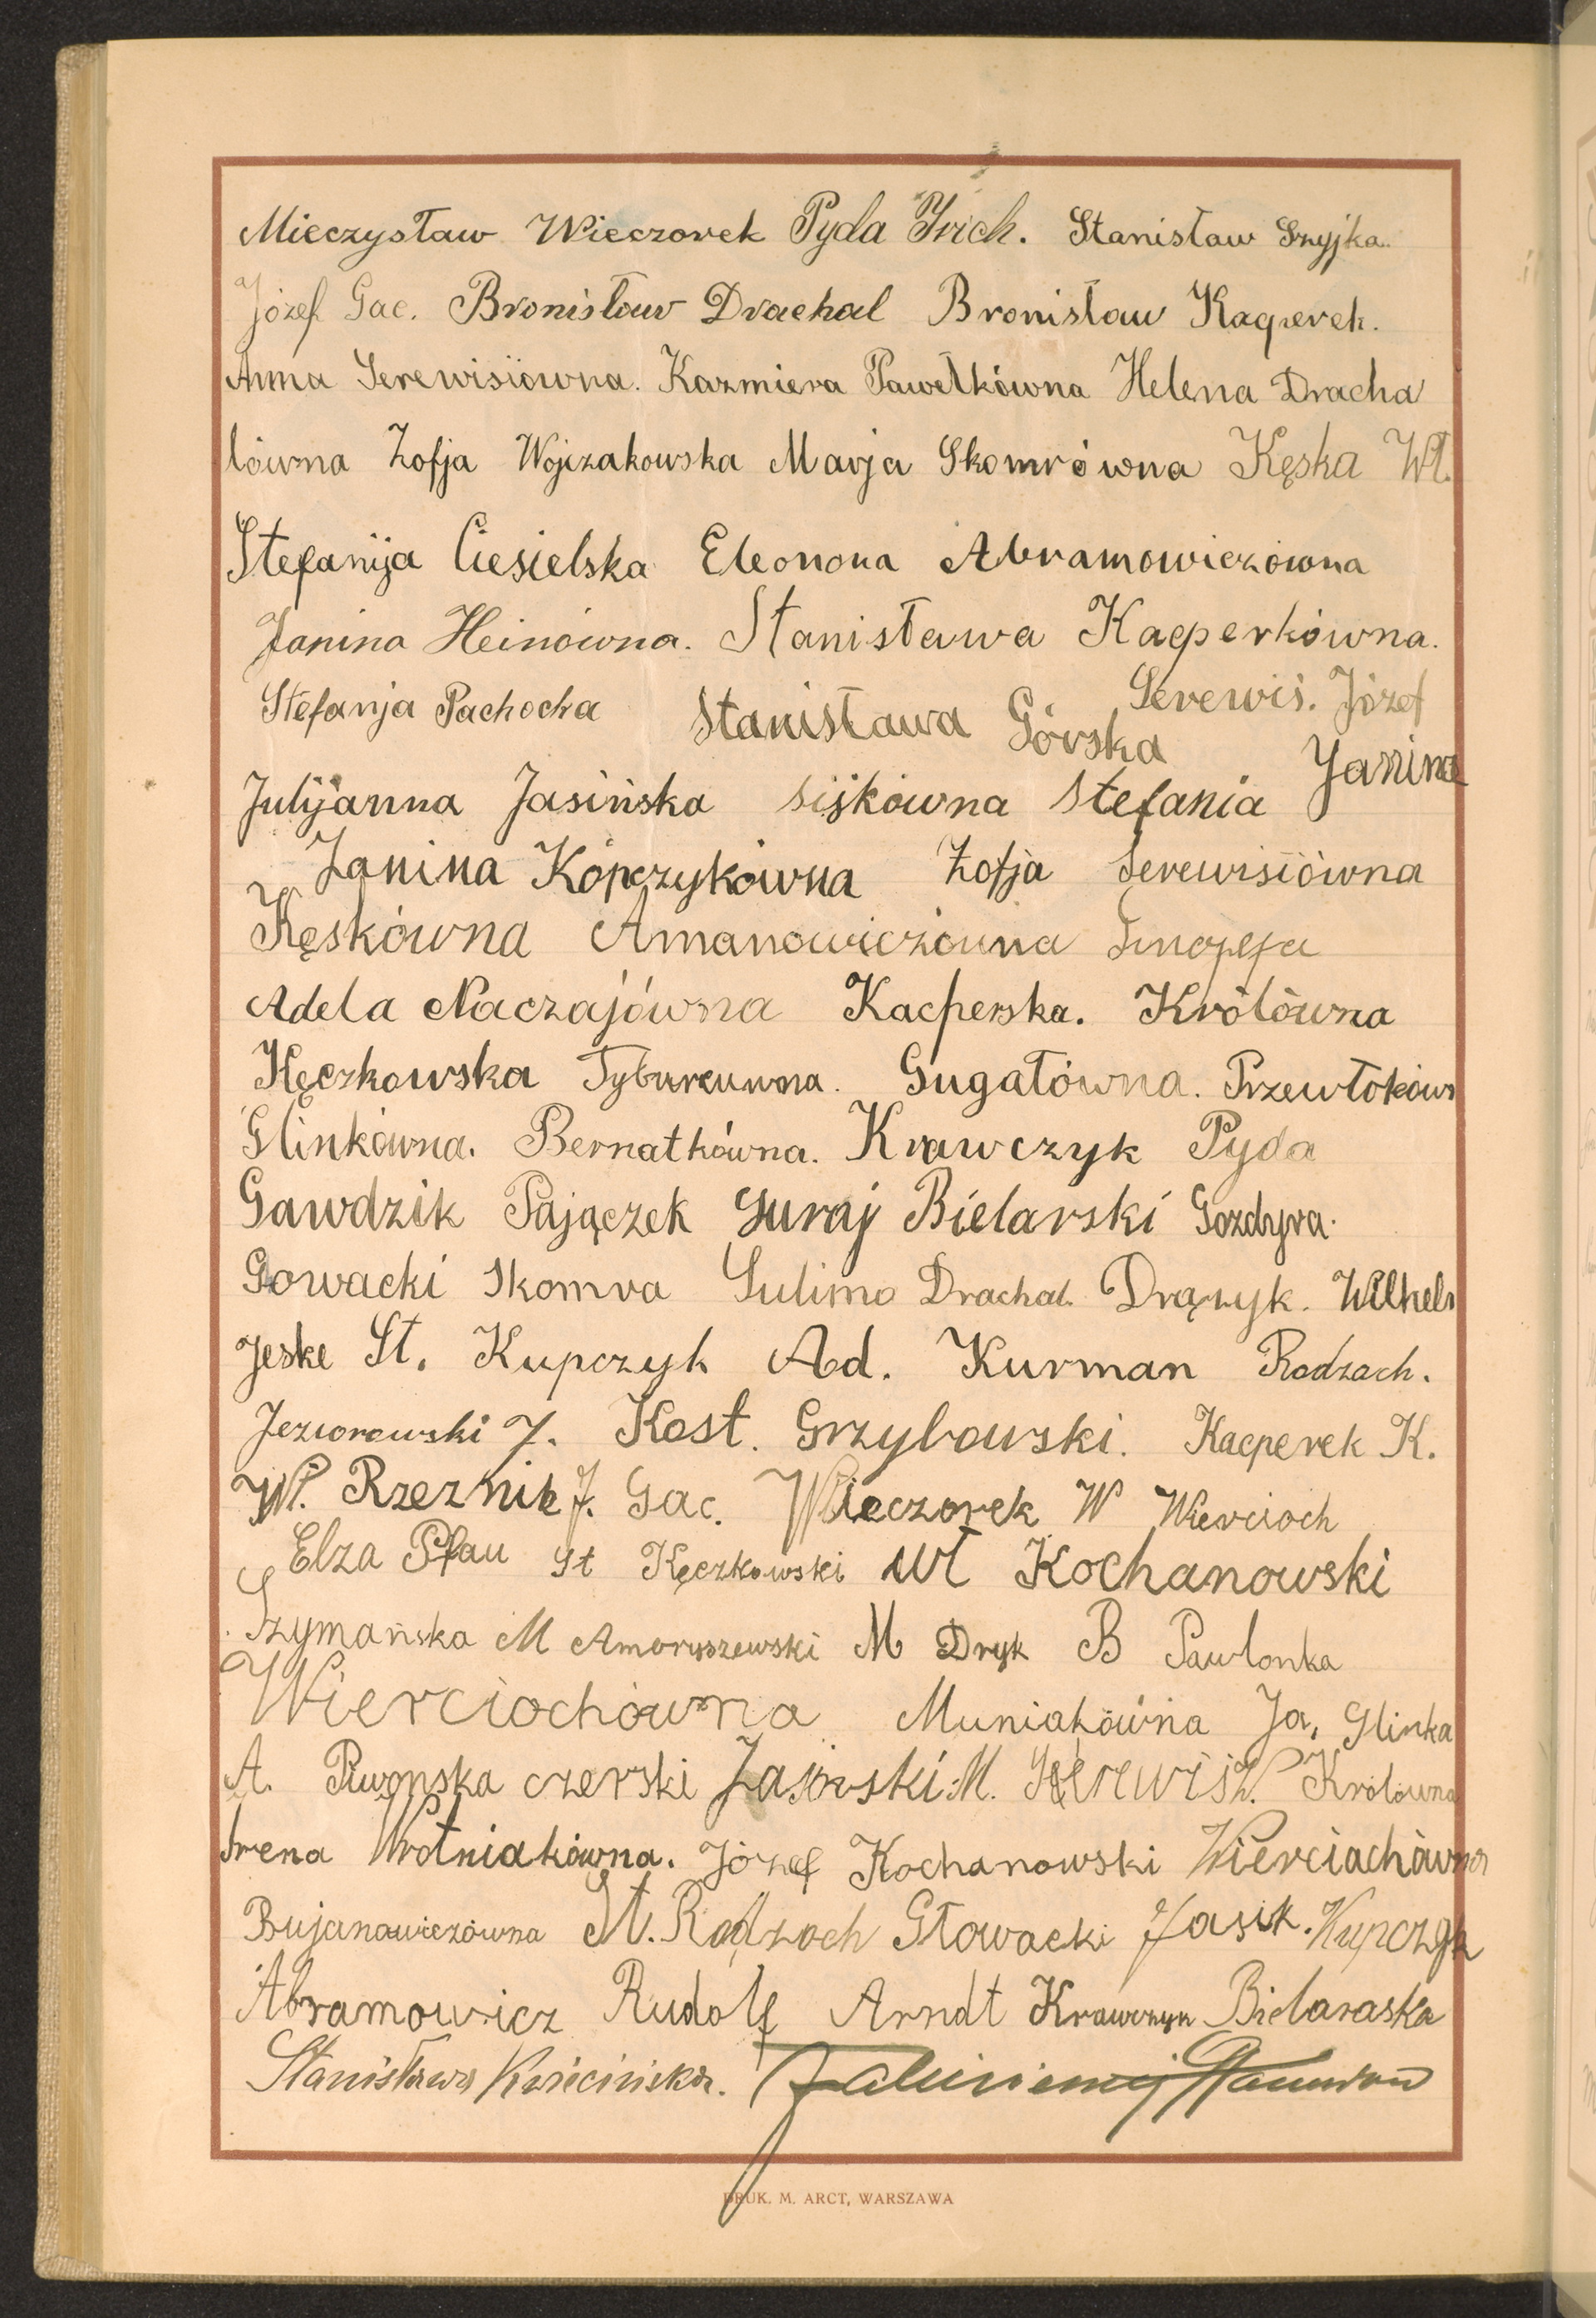 Mieczysław Wieczorek Pyda Frich. Stanisław Szyjka.
Józef Gac. Bronisław Drachal Bronisław Kacperek.
Anna Serewisiówna. Kazmiera Pawełkówna Helena Dracha
lówna Zofja Wojczakowska Marja Skomrówna Kęska Wł.
Stefanija Ciesielska Eleonora Abramowiczówna
Janina Heinówna. Stanisława Kacperkówna.
Stefanja Pachocka Stanisława Górska Serewiś. Józef
Julijanna Jasińska Siśkówna Stefania Janina
Janina Kopczykówna Zofja Serewisiówna
Kęskówna Amanowiczówna
Adela Naczajówna Kacperska. Królówna
Kęczkowska Tyburcuwna. Gugałówna. Przewłokówn
Glinkówna. Bernatkówna. Krawczyk Pyda
Gawdzik Pajączek Guraj Bielarski Gozdyra.
Gowacki Skomra Sulima Drachal. Drązyk. Wilhelm
Jeske St. Kupczyk Ad. Kurman Radzach.
Jeziorowski J. Kost. Grzybowski. Kacperek K.
Wł. Rzeznik J. Gac. Wieczorek W Wiercioch
Elza Pfau St Kęczkowski Wł Kochanowski
Szymańska M Amoryszewski M Dryk B Pawlonka
Wierciochówna Muniakówna Ja, Glinka
A. Piwonska czerski M. Serewiś W. Królówna
Irena Wotniakówna. Józef Kochanowski Wierciachówna
Bujanowiczówna St. Radzoch Głowacki Jasik. Kupczyk
Abramowicz Rudolf Arndt Krawczyk Bielaraska
Stanisława Kwiecińska.
DRUK. M. ARCT, WARSZAWA